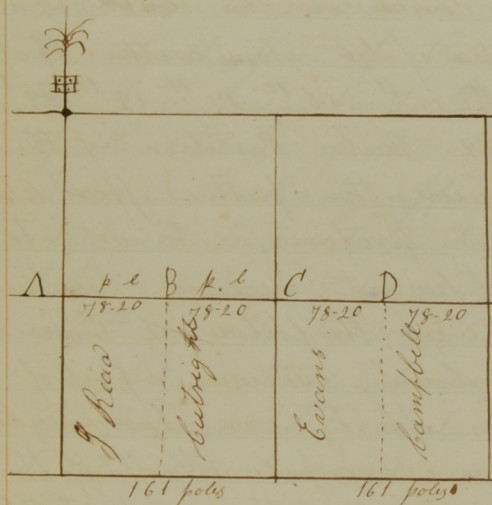 A p e B p. b C D
78-20 78-20 78-20 78-20
J Read
Cutright
Evans
Campbell
161 poles 161 poles